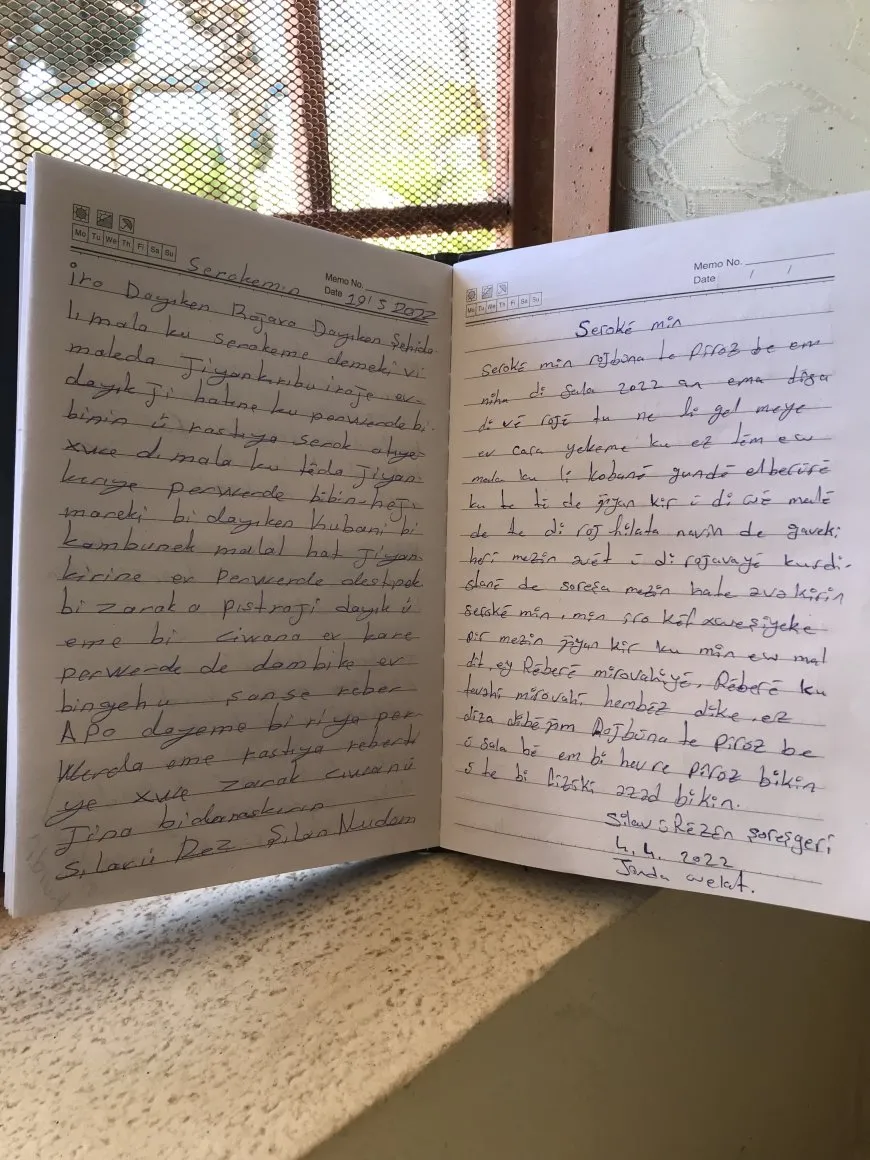 Mo Tu We Th Fr Sa Su
Memo No.
Date 19/5 2022
Serokemin
iro Dayıken Rojava Dayıken Şehida
lı mala ku serokeme demeki vi
maleda Jiyankıribu iroje ev
dayık Ji hatıne ku perwerde bi
binin û rastiya serok
xwe dı mala ku têda Jiyan
kıriye perwerde bibin heji
mareki bi dayıken Kubani bi
kombunek malal hat Jiyan
kirine ev Perwerde destıpek
bi zarak a pıstraji dayık û
eme bi ciwana ev hare
perwerde de dambike ev
bingehu şanse reber
APo dayeme bi riya per
Werda eme rastıya reberti
ye xwe zarak ciwanû
Jina bidanaskırın
Sılav û Rez Şılan Nudom
Memo No.
Date / /
Mo Tu We Th Fr Sa Su
Seroké min
Seroké min rojbûna te Piroz be em
niha di Sala 2022 an ema dîsa
di vê rojê tu ne li gel meye
ev cara yekeme ku ez têm ew
mala ku li kobanê gundê elberûrê
ku te tê de jîyan kir û di wê malê
de te di roj hilata navîn de gaveki
herî mezin avêt û di rojavayê kurdi-
stanê de soreşa mezin hate ava kirin
seroké min, min iro kêf xweşîyeke
pir mezin jîyan kir ku min ew mal
dît, ey Rêberê mirovahîyê, Rêberê ku
tevahî mirovahî hembêz dike, ez
dîsa dibêjim Rojbûna te pîroz be
û sala bê em bi hev re pîroz bikin
û te bi fizîkî azad bikin.
Silav û Rêzên şoreşgerî
4.4. 2022
Jinda welat.